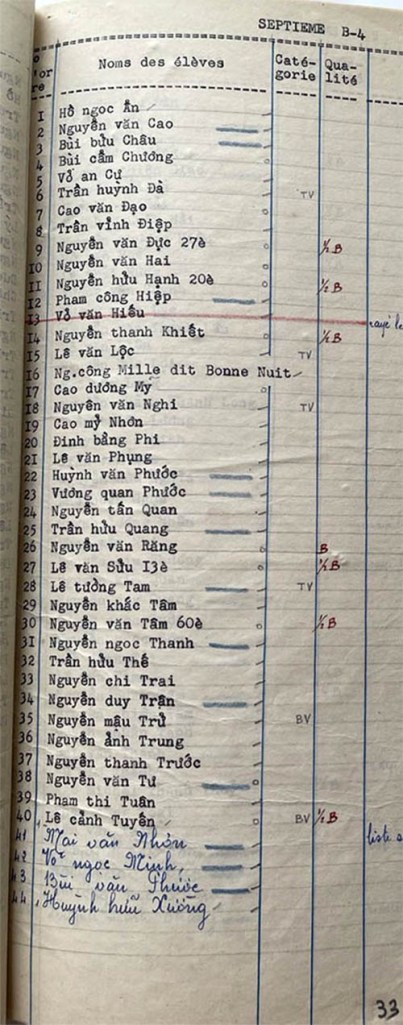 SEPTIEME B-4
Noms des élèves Caté-gorie Qua-lité
1 Hồ ngọc Ẩn
2 Nguyễn văn Cao
3 Bùi bửu Châu
4 Bùi cẩm Chương
5 Võ an Cư
6 Trần huỳnh Đà TV
7 Cao văn Đạo
8 Trần vỉnh Điệp
9 Nguyễn văn Đực 27è ½ B
10 Nguyễn văn Hai
11 Nguyễn hửu Hạnh 20è ½ B
12 Pham công Hiệp
13 Vỏ văn Hiếu rayé le
14 Nguyễn thanh Khiết ½ B
15 Lê văn Lộc TV
16 Ng.công Mille dit Bonne Nuit
17 Cao dương My
18 Nguyễn văn Nghi TV
19 Cao mỹ Nhơn
20 Đinh bằng Phi
21 Lê văn Phụng
22 Huỳnh văn Phước
23 Vương quan Phước
24 Nguyễn tấn Quan
25 Trần hửu Quang
26 Nguyễn văn Răng B
27 Lê văn Sửu I3è ½ B
28 Lê tường Tam TV
29 Nguyễn khắc Tâm
30 Nguyễn văn Tâm 60è ½ B
31 Nguyễn ngoc Thanh
32 Trần hửu Thế
33 Nguyễn chi Trai
34 Nguyễn duy Trân
35 Nguyễn mậu Trử BV
36 Nguyễn ảnh Trung
37 Nguyễn thanh Trước
38 Nguyễn văn Tư
39 Pham thi Tuân
40 Lê cảnh Tuyền BV ½ B
41 Mai văn Nhơn liste
42 Võ ngọc Minh
43 Bùi văn Phước
44 Huỳnh hữu Xường
33